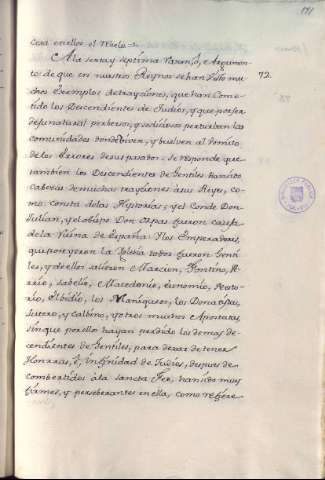 cera en ellos el titulo =
A la sexta, y septima Razon, ò Argumen-
to de que en nuestros Reynos se han visto mu-
chos exemplos de trayciones, que han Come-
tido los Descendientes de Judios, y que por ser
de su natural perversos, y sediciosos perturban las
comunidades donde viven, y buelven al vomito
de los Errores de sus pasados. Se responde que
tambien los Descendientes de Gentiles han sido
caberas de muchas trayciones à sus Reyes, co-
mo consta de las Historias, y el Conde Don
Julian, y el obispo Don Orpas fueron causa
de la Ruina de España: Y los Emperadores,
que persiguieron la Iglesia todos fueron Genti-
les, y de ellos salieron Marcion, Fontino, Ar-
rio, Sabelio, Macedonio, Eunomio, Nesto-
rio, Elbidio, los Maniqueos, los Donatistas,
Lutero, y Calbino, y otros muchos Apostatas,
sin que por ello hayan perdido los demas des-
cendientes de Gentiles, para dexar de tener
Honrras, è, infinidad de Judios, despues de
combertidos à la sancta Fee, han sido muy
firmes, y perseberantes en ella, como refiere
72.